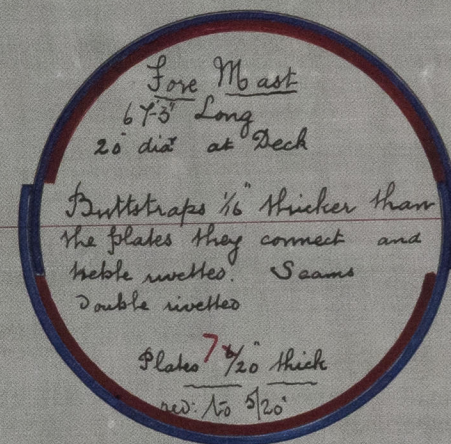 Fore Mast
67'-3" Long
20" diar at Deck
Buttstraps 1/16" thicker than
the plates they connect and
treble rivetted. Seams
Double rivetted
Plates 7/20" thick
red: to 5/20"